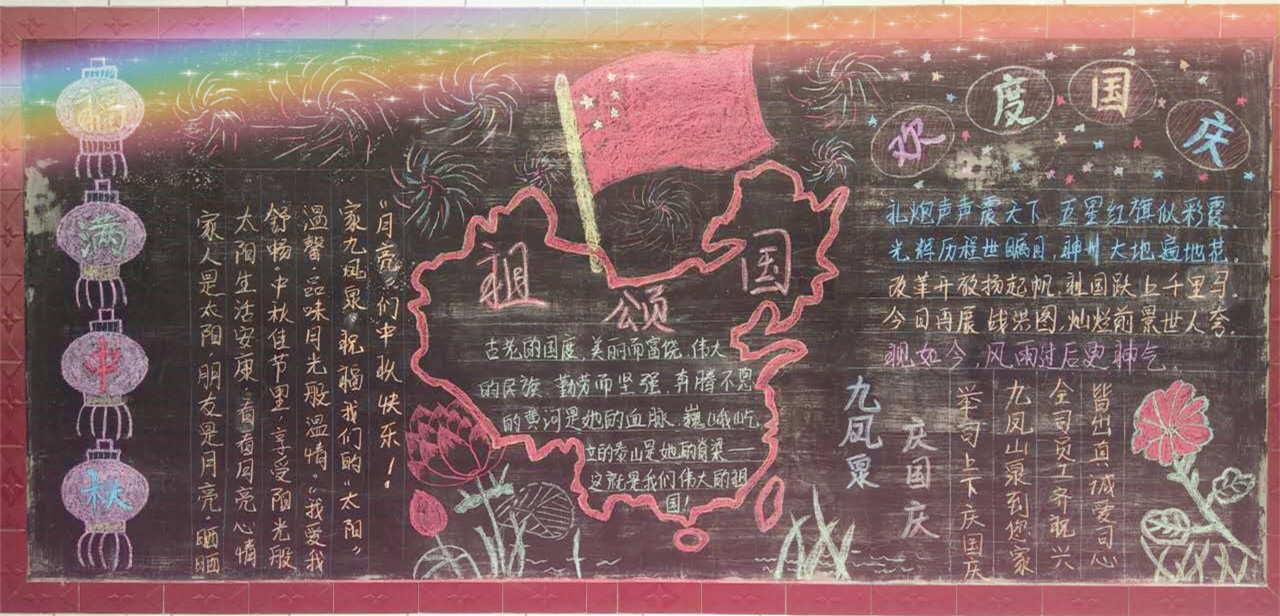 福满中秋
家人是太阳·朋友是月亮·晒晒
太阳生活安康·看看月亮心情
舒畅·中秋佳节里·享受阳光般
温馨·品味月光般温情。我爱我
家九凤泉·祝福我们的"太阳"
"月亮"们中秋快乐！
祖国颂
古老的国度,美丽而富饶,伟大
的民族,勤劳而坚强,奔腾不息
的黄河是她的血脉,巍峨屹
立的泰山是她的脊梁——
这就是我们伟大的祖
国!
欢度国庆
礼炮声声震天下 五星红旗似彩霞.
光辉历程世瞩目,神州大地遍地花.
改革开放扬起帆,祖国跃上千里马.
今日再展战洪图,灿烂前景世人夸.
观如今,风雨过后更神气.
九凤泉
庆国庆
举司上下庆国庆
九凤山泉到您家
全司员工齐祝兴
皆出真诚爱司心